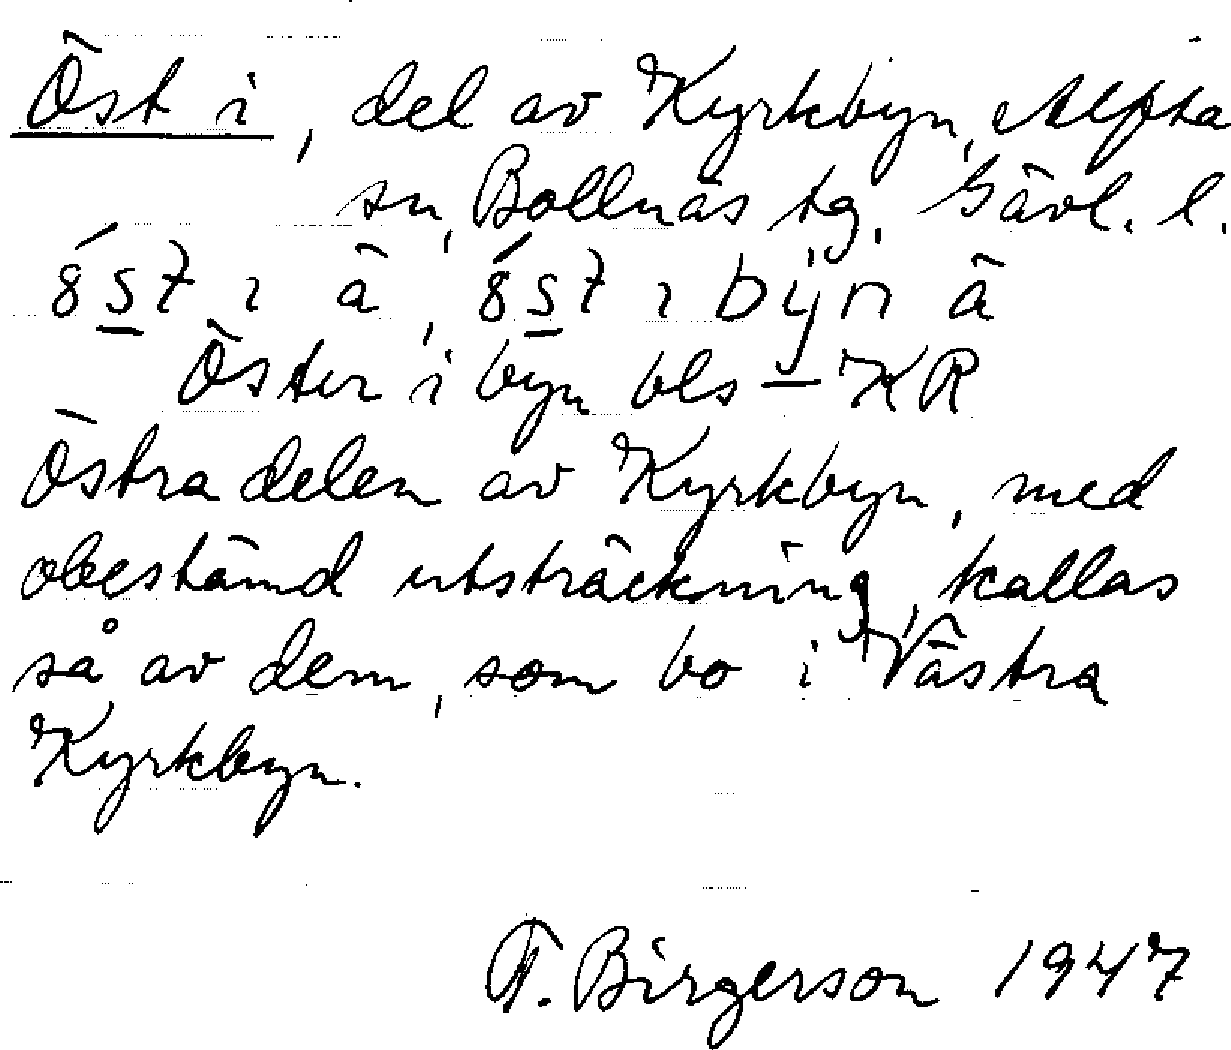 Öst i, del av Kyrkbyn, Alfta
sn, Bollnäs tg. Gävl. l.
Öster i byn bls – KR
Östra delen av Kyrkbyn, med
obestämd utsträckning, kallas
så av dem, som bo i Västra
Kyrkbyn.
F. Birgerson 1947